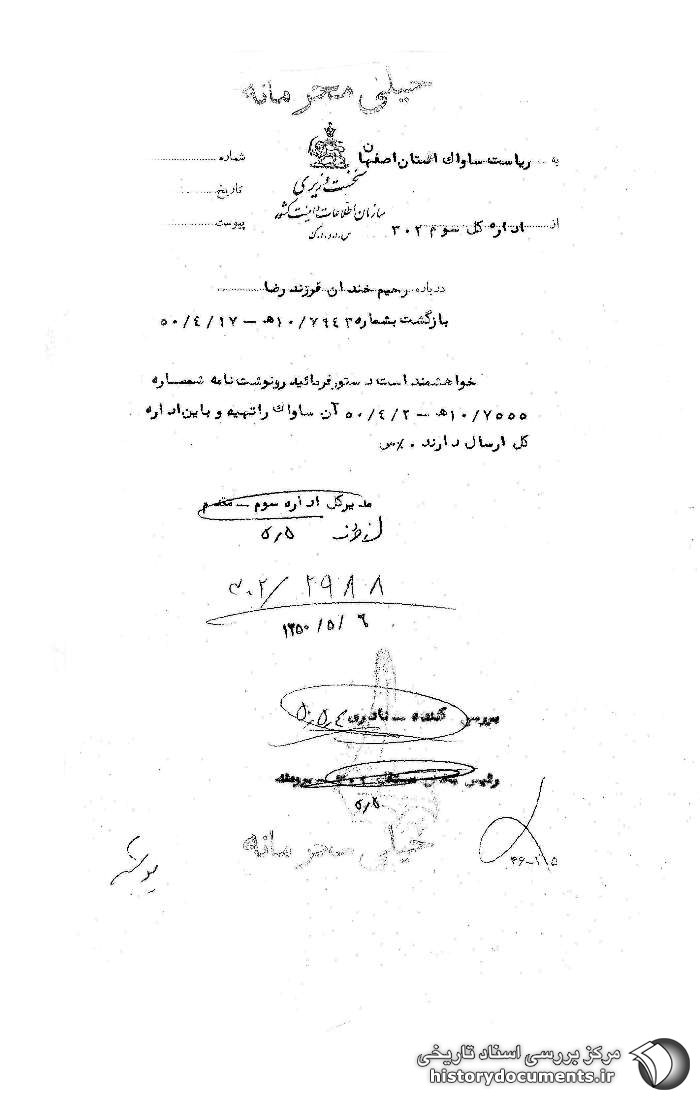 خیلی محرمانه
به ریاست ساواک استان اصفهان
شماره
نخست وزیری
تاریخ
سازمان اطلاعات و امنیت کشور
س.ا.و.ا.ک
از اداره کل سوم ۳۰۲
پیوست
درباره رحیم خندان فرزند رضا
بازگشت بشماره ۱۰/۷۹۴۳ه‍ – ۵۰/۴/۱۷
خواهشمند است دستور فرمائید رونوشت نامه شماره
۱۰/۷۵۵۵ه‍ – ۵۰/۴/۲ آن ساواک را تهیه و باین اداره
کل ارسال دارند . %س
مدیرکل اداره سوم – مقدم
از طرف
۵/۵
۳۰۲/۲۹۸۸
۱۳۵۰/۵/۶
بررسی کننده – نادری ۵۰٫۵٫۴
رئیس بخش
۵/۵
خیلی محرمانه
مرکز بررسی اسناد تاریخی
historydocuments.ir